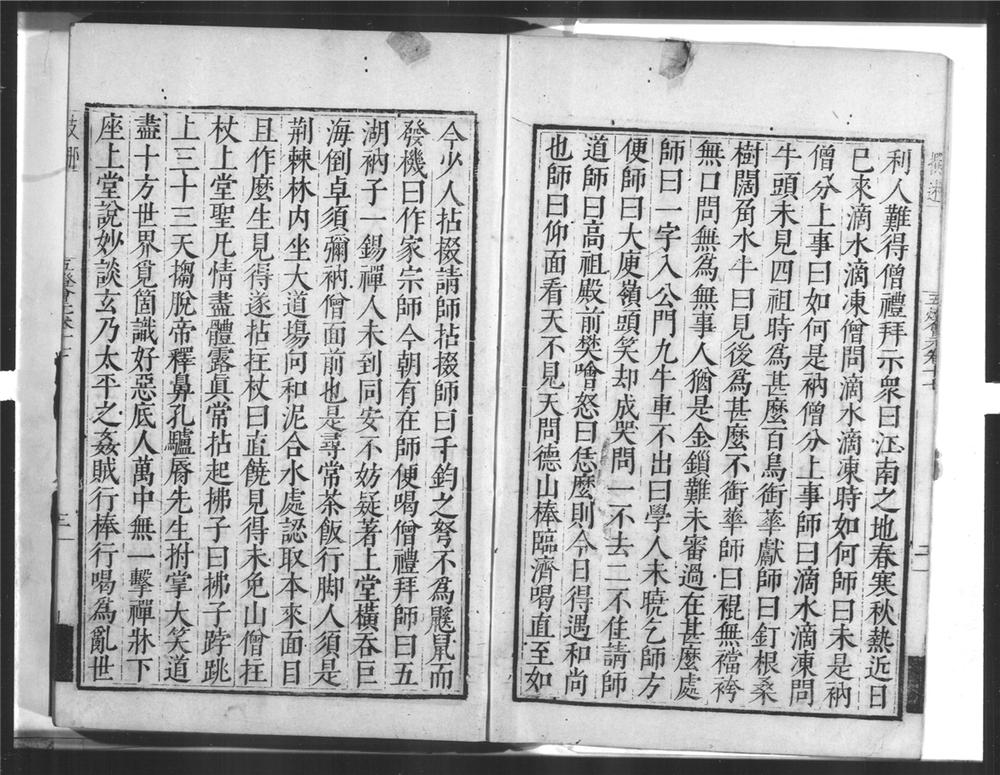 利人難得僧禮拜示衆曰江南之地春寒秋熱近日
已來滴水滴凍僧問滴水滴凍時如何師曰未是衲
僧分上事曰如何是衲僧分上事師曰滴水滴凍問
牛頭未見四祖時爲甚麼百鳥銜華獻師曰釘根桑
樹闊角水牛曰見後爲甚麼不銜華師曰裩無襠袴
無口問無爲無事人猶是金鎖難未審過在甚麼處
師曰一字入公門九牛車不出曰學人未曉乞師方
便師曰大庾嶺頭笑却成哭問一不去二不住請師
道師曰高祖殿前樊噲怒曰恁麼則今日得遇和尚
也師曰仰面看天不見天問德山棒臨濟喝直至如
今少人拈掇請師拈掇師曰千鈞之弩不爲鼷鼠而
發機曰作家宗師今朝有在師便喝僧禮拜師曰五
湖衲子一錫禪人未到同安不妨疑著上堂橫吞巨
海倒卓須彌衲僧面前也是尋常茶飯行脚人須是
荆棘林內坐大道場向和泥合水處認取本來面目
且作麼生見得遂拈拄杖曰直饒見得未免山僧拄
杖上堂聖凡情盡體露眞常拈起拂子曰拂子𨁝跳
上三十三天搊脫帝釋鼻孔驢脣先生拊掌大笑道
盡十方世界覓箇識好惡底人萬中無一擊禪牀下
座上堂說妙談玄乃太平之姦賊行棒行喝爲亂世